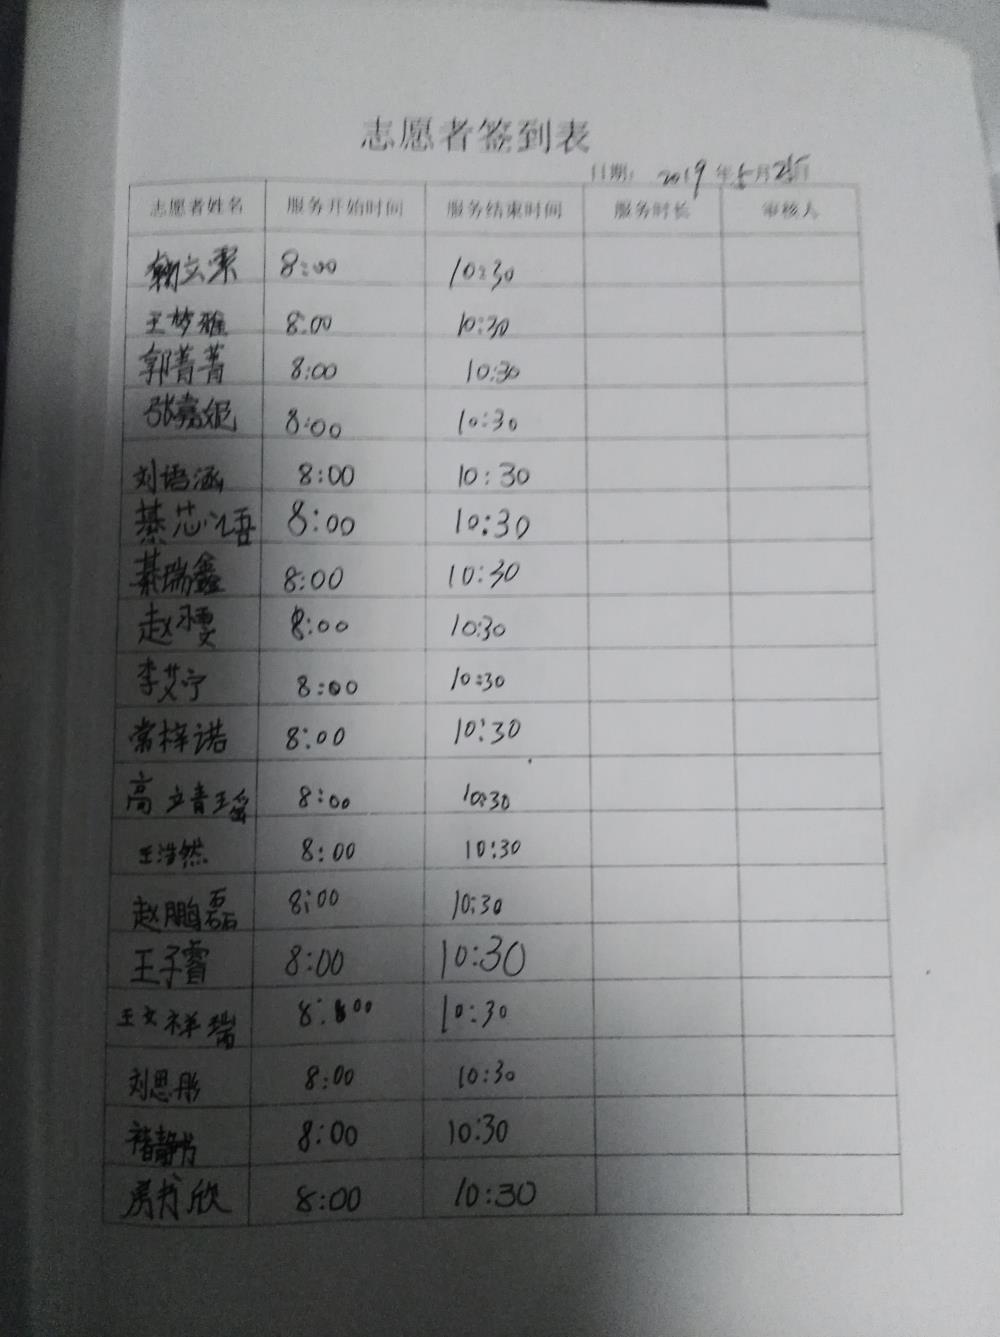 志愿者签到表
日期: 2019 年5月25日
志愿者姓名 服务开始时间 服务结束时间 服务时长 审核人
8:00 10:30
王梦雅 8:00 10:30
郭菁菁 8:00 10:30
张嘉妮 8:00 10:30
刘语涵 8:00 10:30
綦芯语 8:00 10:30
綦瑞鑫 8:00 10:30
赵 8:00 10:30
李艾宁 8:00 10:30
常梓诺 8:00 10:30
高立青瑶 8:00 10:30
王浩然 8:00 10:30
赵鹏磊 8:00 10:30
王子睿 8:00 10:30
王文祥瑞 8:00 10:30
刘思彤 8:00 10:30
褚静 8:00 10:30
欣 8:00 10:30